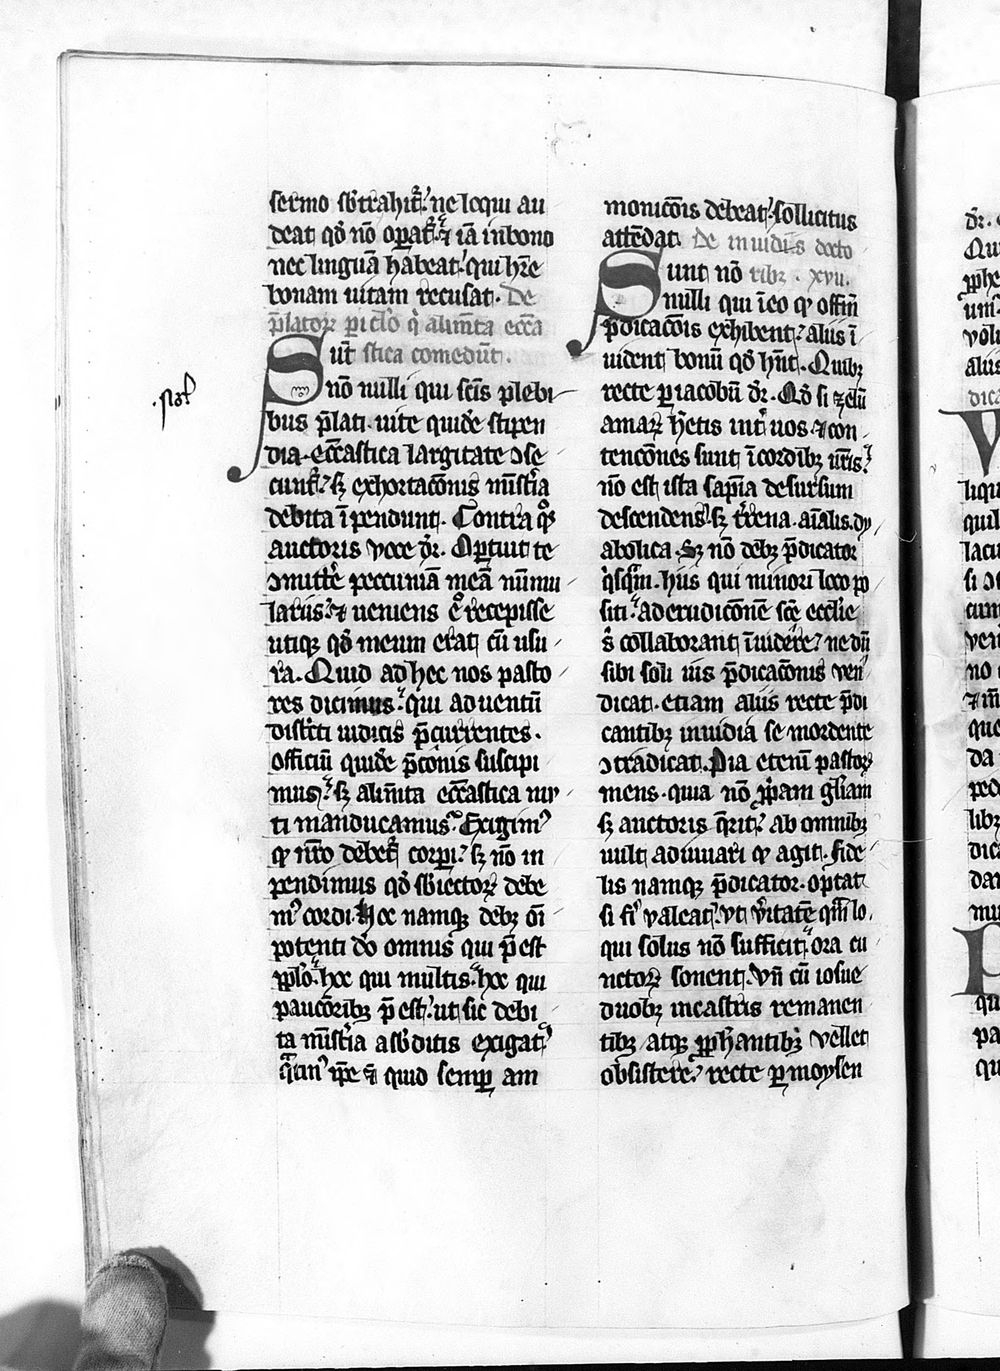 sermo sb̾trahit᷒. ne loqui au
deat qd̾ nō oꝑat᷒. ⁊ iā in bono
nec linguā habeat. qui hr̄e
bonam uitam recusat. De
p̄latoꝝ ꝑic̄lo q̇ alim̄ta ecc̄a
Sūt stica comedūt.
nō nulli qui sc̄is plebi
bus p̄lati. uite quidē stipen
dia. ecc̄astica largitate ꝯse
cunt᷒. sꝫ exhortac̄onis mīst̄ia
debita īpendunt. Contra qͦs
auctoris voce dr̄. Oꝑtuit te
ꝯmitt̾e pecuniā meā nūmu
lariis. ⁊ ueniens eͦ recepisse
utiqꝫ qd̾ meum erat cū usu
ra. Quid ad hec nos pasto
res dicimus. qui aduentū
district̄i iudicis p̄currentes.
officiū quidē p̄conis suscipi
mus. sꝫ alim̄ta ecc̄astica mu
ti manducamus. Exigimꝰ
qꝫ nr̄o debet᷒ corpi. sꝫ nō in
pendimus qd̾ sb̾iectoꝝ debe
mꝰ cordi. Hec namqꝫ debꝫ oī
potenti dō omnis qui p̄est
pp̄lo. hec qui multis. hec qui
paucōribꝫ p̄est. ut sic debi
ta mīst̄ia a sb̾ditis exigat᷒.
qͣtinꝰ ip̄e qͥd semꝑ am
monic̄onis debeat. sollicitus
attēdat. De inuidiis docto
Sunt nō ribꝫ. xvii.
nulli qui īeo qꝫ offm̄
p̄dicac̄onis exhibent. aliis ī
uident bonū qd̾ hn̄t. Quibꝫ
recte ꝑ iacobū dr̄. Qd̾ si ꝫelū
amaꝝ hētis int̾ uos. ⁊ con
tenc̄ones sunt ī cordibꝫ ur̄is.
nō est ista sapīa desursum
descendens. sꝫ t̾rena. aīalis. dy
abolica. Sꝫ nō debꝫ p̄dicator
qͥsqͣm. hiis qui minori loco po
siti. ad erudic̄onē sc̄e eccl̄ie
s̄ collaborant īuidere. ne dū
sibi soli uis p̄dicac̄onis ven
dicat. etiam aliis recte p̄di
cantibꝫ inuidia se mordente
ꝯtradicat. Pia etenī pastoꝝ
mens. quia nō ꝓp̄am gl̄iam
sꝫ auctoris q̄rit. ab omnibꝫ
uult adiuuari qꝫ agit. Fide
lis namqꝫ p̄dicator. optat
si fi̾ valeat. vt v̾itatē qͣm lo
qui solus nō sufficit. ora cu
nctoꝝ sonent. Vn̄ cū iosue
duobꝫ in castris remanen
tibꝫ atqꝫ ꝓph̄antibꝫ vellet
obsistere. recte ꝑ moysen